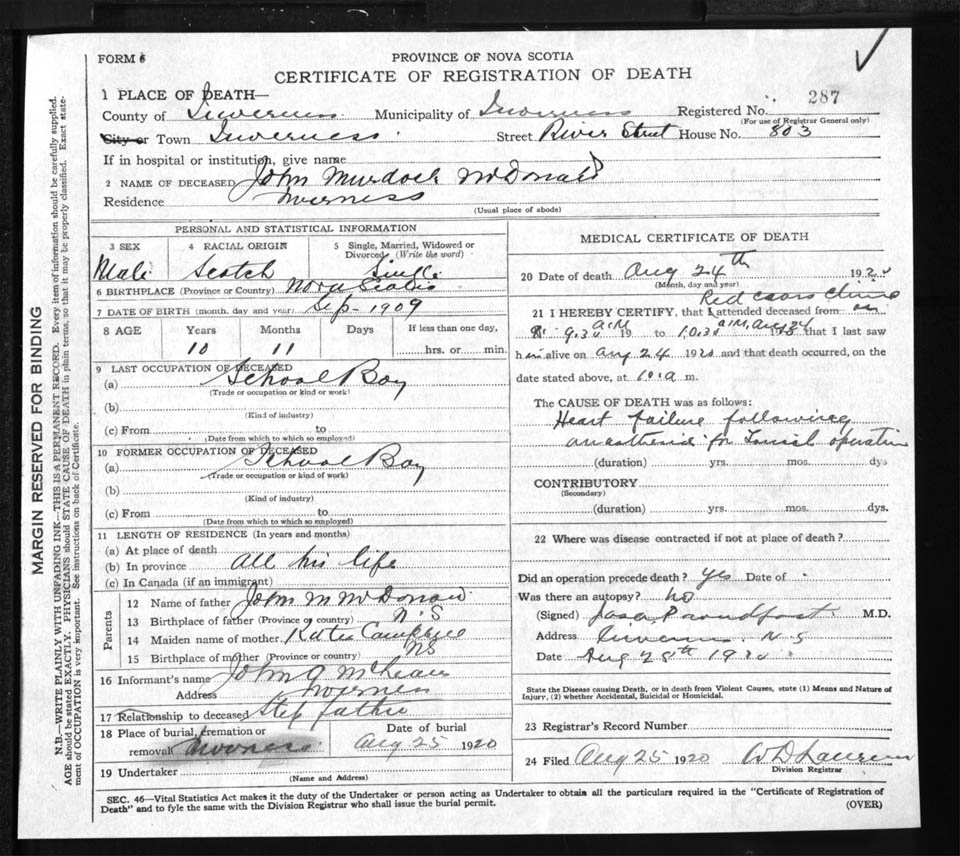 FORM 6
PROVINCE OF NOVA SCOTIA
CERTIFICATE OF REGISTRATION OF DEATH
1 PLACE OF DEATH—
County of Inverness Municipality of Inverness Registered No. 287
(For use of Registrar General only)
City or Town Inverness Street River Street House No. 803
If in hospital or institution, give name
2 NAME OF DECEASED John Murdock McDonald
Residence Inverness
(Usual place of abode)
PERSONAL AND STATISTICAL INFORMATION
3 SEX 4 RACIAL ORIGIN 5 Single, Married, Widowed or Divorced (Write the word)
Male Scotch Single
6 BIRTHPLACE (Province or Country) Nova Scotia
7 DATE OF BIRTH (month, day and year) Sep - 1909
8 AGE Years Months Days If less than one day,
10 11 hrs. or min.
9 LAST OCCUPATION OF DECEASED
(a) School Boy
(Trade or occupation or kind of work)
(b)
(Kind of industry)
(c) From to
(Date from which to which so employed)
10 FORMER OCCUPATION OF DECEASED
(a) School Boy
(Trade or occupation or kind of work)
(b)
(Kind of industry)
(c) From to
(Date from which to which so employed)
11 LENGTH OF RESIDENCE (In years and months)
(a) At place of death
(b) In province all his life
(c) In Canada (if an immigrant)
Parents
12 Name of father John M McDonald
13 Birthplace of father (Province or country) N S
14 Maiden name of mother Katie Campbell
15 Birthplace of mother (Province or country) NS
16 Informant's name John A McLean
Address Inverness
17 Relationship to deceased Step father
18 Place of burial, cremation or removal Inverness Date of burial Aug 25 1920
19 Undertaker
(Name and Address)
MEDICAL CERTIFICATE OF DEATH
20 Date of death Aug 24th 1920
(Month, day and year)
Red Cross Clinic
21 I HEREBY CERTIFY, that I attended deceased from on
9.30 a.m. 19 to 10.30 a.m. Aug 24 19 that I last saw
him alive on Aug 24 1920 and that death occurred, on the
date stated above, at 10.a m.
The CAUSE OF DEATH was as follows:
Heart failure following
anaesthesia for Tonsil operation
(duration) yrs. mos. dys
CONTRIBUTORY
(Secondary)
(duration) yrs. mos. dys.
22 Where was disease contracted if not at place of death?
Did an operation precede death? yes Date of
Was there an autopsy? no
(Signed) M.D.
Address Inverness N.S
Date Aug 25th 1920
State the Disease causing Death, or in death from Violent Causes, state (1) Means and Nature of
Injury, (2) whether Accidental, Suicidal or Homicidal.
23 Registrar's Record Number
24 Filed Aug 25 1920 W D
Division Registrar
SEC. 46—Vital Statistics Act makes it the duty of the Undertaker or person acting as Undertaker to obtain all the particulars required in the "Certificate of Registration of
Death" and to fyle the same with the Division Registrar who shall issue the burial permit. (OVER)
MARGIN RESERVED FOR BINDING
N.B.—WRITE PLAINLY WITH UNFADING INK—THIS IS A PERMANENT RECORD. Every item of information should be carefully supplied.
AGE should be stated EXACTLY. PHYSICIANS should STATE CAUSE OF DEATH in plain terms, so that it may be properly classified. Exact state-
ment of OCCUPATION is very important. See instructions on back of Certificate.